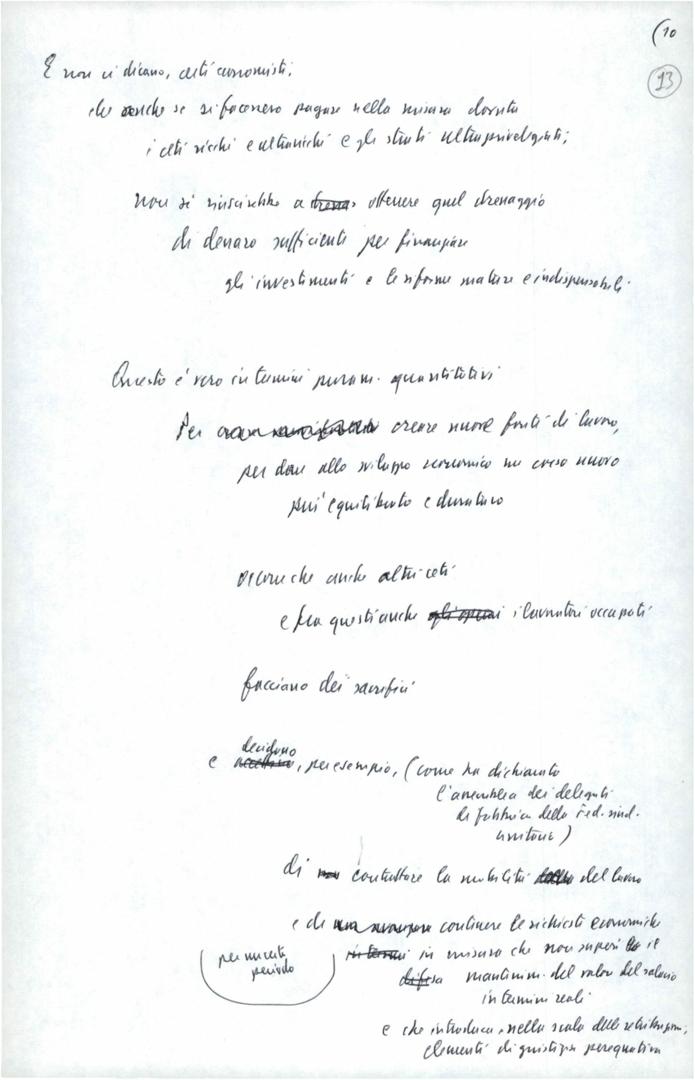 (10
13
E non ci dicano, certi economisti,
che anche se si facessero pagare nella misura dovuta
i ceti ricchi e ultraricchi e gli strati ultraprivilegiati;
non si riuscirebbe a ottenere quel drenaggio
di denaro sufficiente per finanziare
gli investimenti e le riforme mature e indispensabili
Questo è vero in termini puram. quantitativi
Per creare nuove fonti di lavoro,
per dare allo sviluppo economico un corso nuovo
più equilibrato e duraturo
occorre che anche altri ceti
e fra questi anche gli operai i lavoratori occupati
facciano dei sacrifici
decidano
e accettino, per esempio, (come ha dichiarato
l'assemblea dei delegati
di fabbrica della Fed. sind.
unitaria)
di contrattare la mobilità del lavoro
e di contenere le richieste economiche
per un certo
periodo
in termini in misura che non superi il
difesa mantenim. del valore del salario
in termini reali
e che introduca, nella scala delle retribuzioni,
elementi di giustizia perequativa